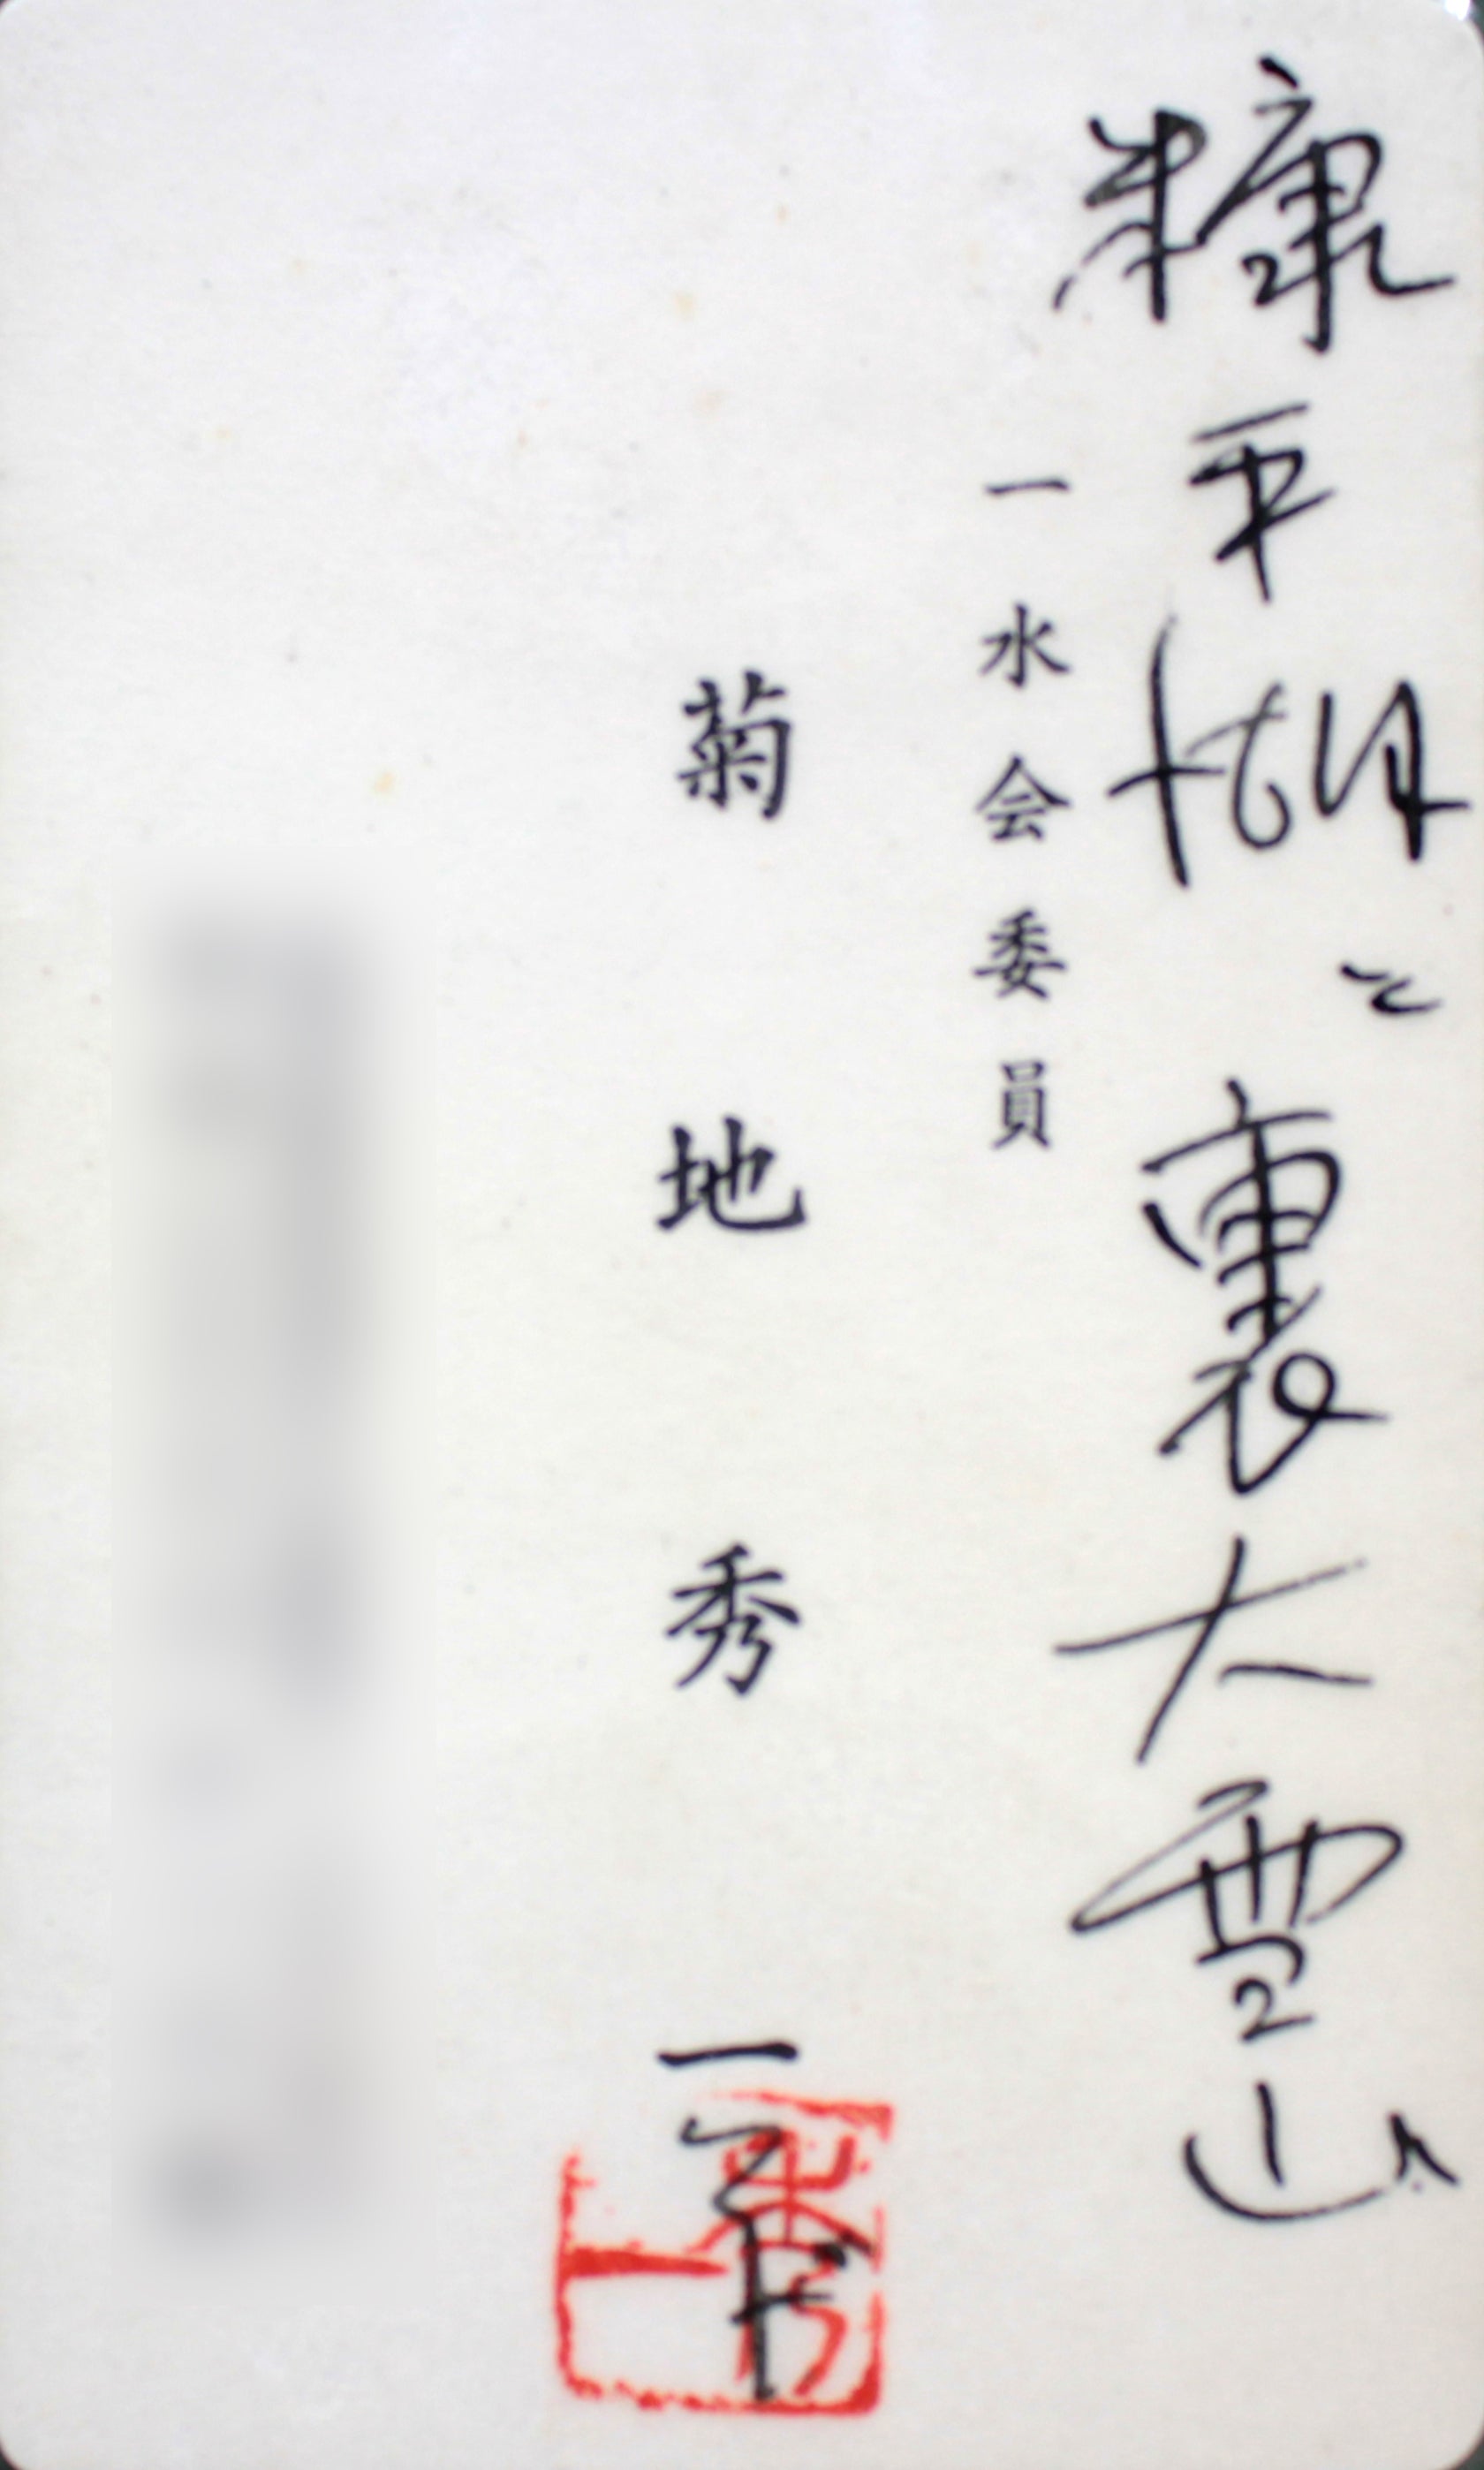 糠平湖と裏大雪山
一水会委員
菊地秀一
秀一